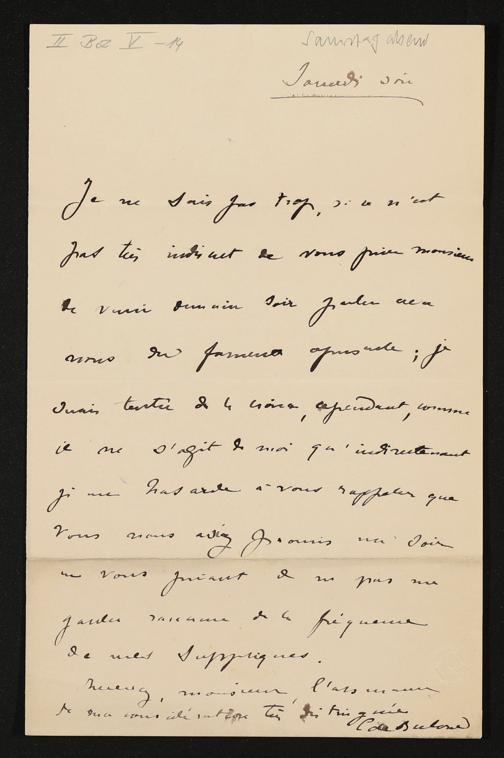 II Bü V - 14
Samstag abend
Samedi soir
Je ne sais pas trop, si ce n'est
pas très indiscret de vous prier monsieur
de venir demain soir parler avec
nous du fameux opuscule ; je
serais tentée de le croire, cependant, comme
il ne s'agit de moi qu'indirectement
je me hasarde à vous rappeler que
vous nous aviez promis une soirée
en vous priant de ne pas me
garder rancune de la fréquence
de mes suppliques.
Recevez, monsieur, l'assurance
de ma considération très distinguée
C de